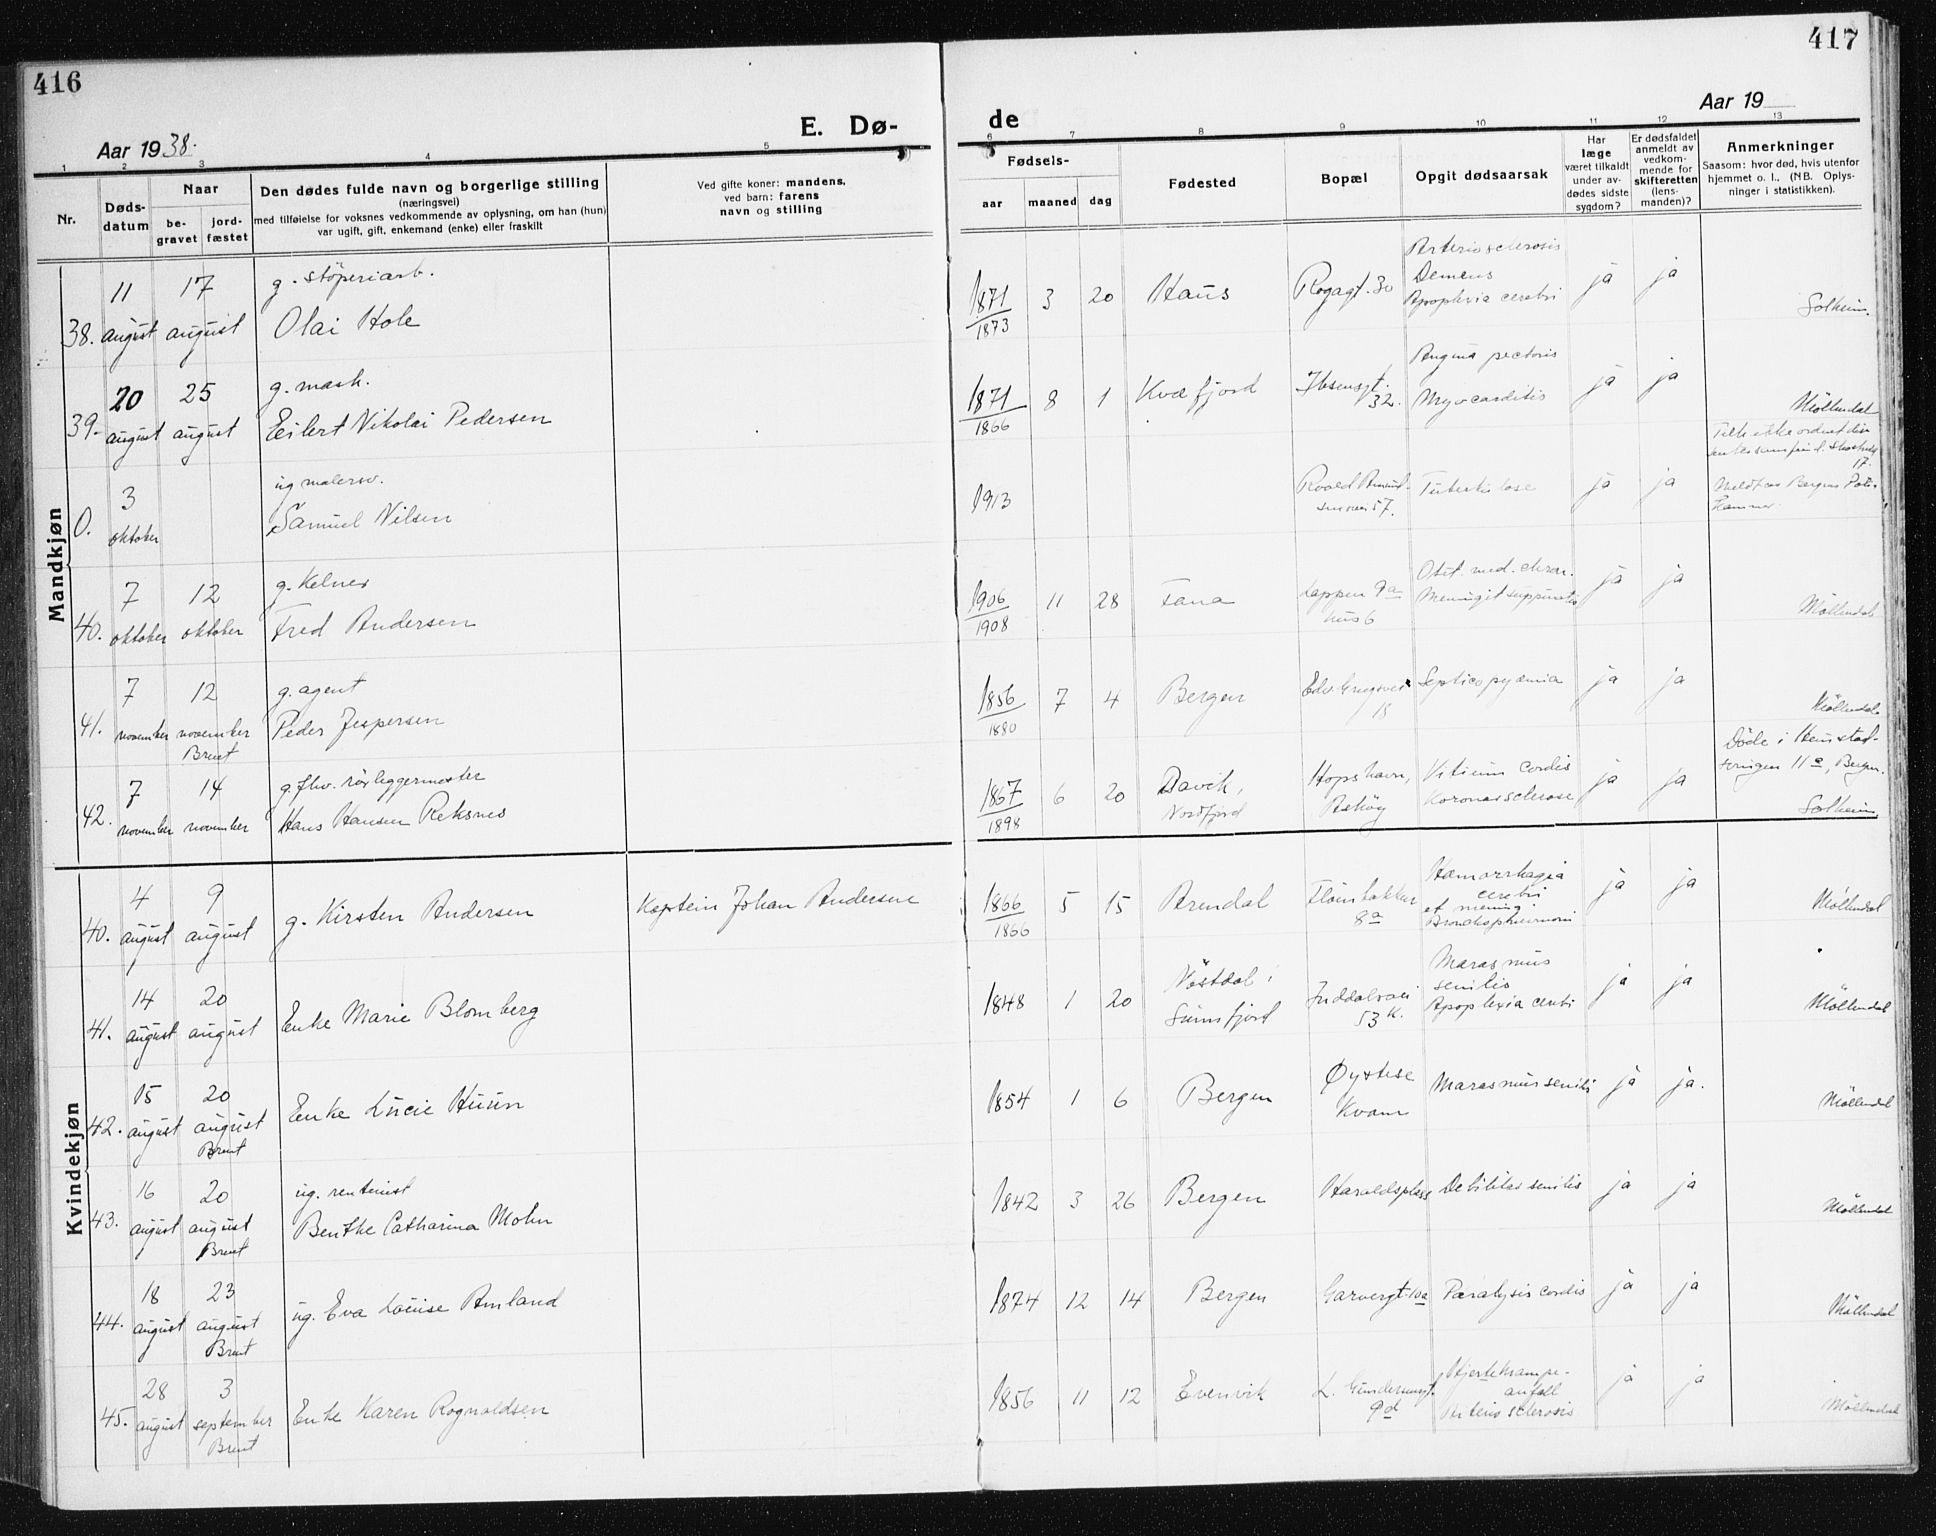 416
417
Aar 1938.
E. Dø-
de
Aar 19
1 2 3 4 5 6 7 8 9 10 11 12 13
Nr.
Døds-
datum
Naar
be-
gravet
jord-
fæstet
Den dødes fulde navn og borgerlige stilling
(næringsvei)
med tilføielse for voksnes vedkommende av oplysning, om han (hun)
var ugift, gift, enkemand (enke) eller fraskilt
Ved gifte koner: mandens,
ved barn: farens
navn og stilling
Fødsels-
aar maaned dag
Fødested
Bopæl
Opgit dødsaarsak
Har
læge
været tilkaldt
under av-
dødes sidste
sygdom?
Er dødsfaldet
anmeldt av
vedkom-
mende for
skifteretten
(lens-
manden)?
Anmerkninger
Saasom: hvor død, hvis utenfor
hjemmet o. l., (NB. Oplys-
ninger i statistikken).
Mandkjøn
38. 11 august 17 august
g. støperiarb.
Olai Hole
1871
1873
3 20 Haus
Rogagt. 30
Arteriosclerosis
Demens
Apoplexia cerebri
ja ja Solheim.
39. 20 august 25 august
g. mask.
Eilert Nikolai Pedersen
1871
1866
8 1 Kvæfjord
Ibsensgt.
32.
Angina pectoris
Myocarditis
ja ja Møllendal
0. 3 oktober
ug malersv.
Samuel Nilsen
1913
57.
Tuberkulose
ja ja
17.
40. 7 oktober 12 oktober
g. Kelner
Fred Andersen
1906
1908
11 28 Fana
Lappen 9a
hus 6
Otit. med. chron.
ja ja Møllendal
41. 7 november 12 november
Brent
g. agent
Peder Jespersen
1856
1880
7 4 Bergen
Edv. Griegsvei
18
Septicopyæmia
ja ja Møllendal
42. 7 november 14 november
g. fhv. rørleggermester
Hans Hansen Reksnes
1867
1898
6 20 Davik,
Nordfjord
Hopshavn,
Askøy
Vitium cordis
Koronarsclerose
ja ja
Døde i
11 a, Bergen.
Solheim
Kvindekjøn
40. 4 august 9 august
g. Kirsten Andersen
Kaptein Johan Andersen
1866
1866
5 15 Arendal
Fløenbakken
8a
Hæmorrhagia
cerebri
et mening.
ja ja Møllendal
41. 14 august 20 august
Enke Marie Blomberg
1848 1 20
Nøstdal i
Sunnfjord
53 K.
Marasmus
senilis
Apoplexia cerebri
ja ja Møllendal
42. 15 august 20 august
Brent
Enke Lucie Huun
1854 1 6 Bergen
Øystese
Kvam
Marasmus senilis
ja ja. Møllendal
43. 16 august 20 august
Brent
ug. rentenist
Benthe Catharina Mohn
1842 3 26 Bergen
Haraldsplass
Debilitas senilis
ja ja Møllendal
44. 18 august 23 august
Brent
ug. Eva Louise Amland
1874 12 14 Bergen
Garvergt. 10a
Paralysis cordis
ja ja Møllendal
45. 28 august 3 september
Brent
Enke Karen Rognaldsen
1856 11 12 Evenvik
L. Gundersengt.
9d
Hjertekrampe-
anfall
Arteriosclerosis
ja ja Møllendal